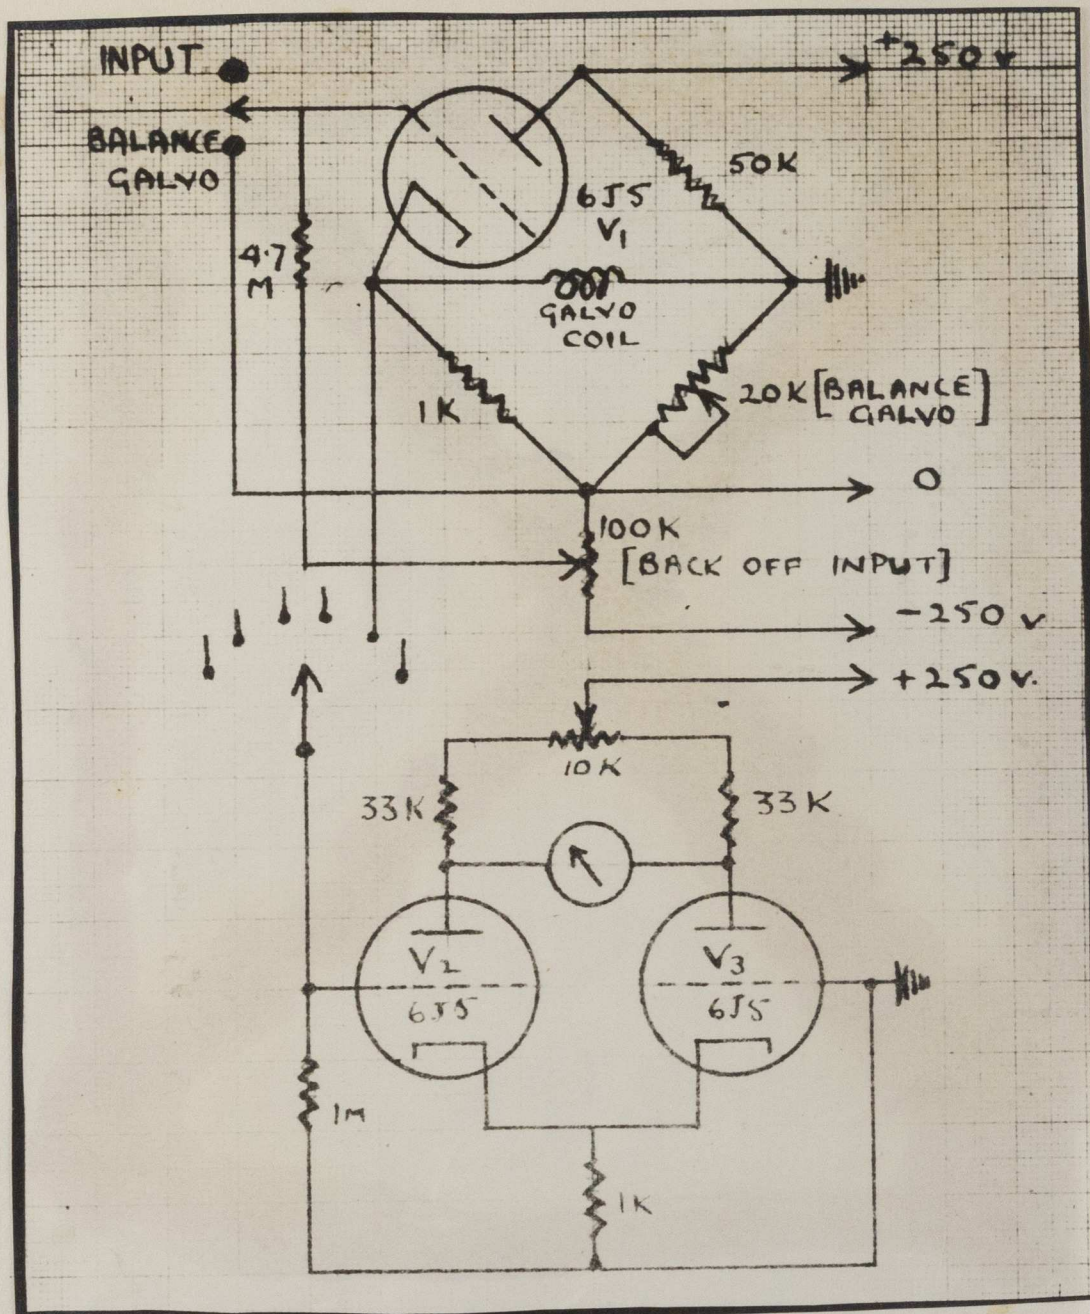 INPUT
+250 v
BALANCE
GALVO
50K
6J5
V1
4.7
M
GALVO
COIL
1K
20K [BALANCE
GALVO]
0
100K
[BACK OFF INPUT]
-250 v
+250 v.
10K
33K
33K
V2
6J5
V3
6J5
1M
1K